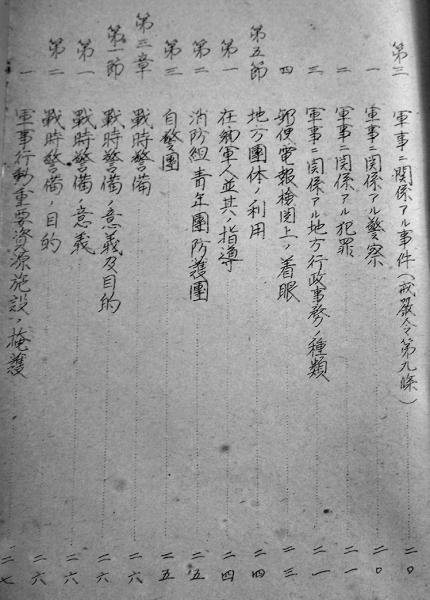 第三 軍事ニ関係アル事件(戒嚴令第九條) 二〇
一 軍事ニ関係アル警察 二〇
二 軍事ニ関係アル犯罪 二一
三 軍事ニ関係アル地方行政事務ノ種類 二一
四 郵便電報検閲上ノ着眼 二三
第五節 地方團体ノ利用 二四
第一 在郷軍人並其ノ指導 二四
第二 消防組青年團防護團 二五
第三 自警團 二五
第三章 戰時警備 二六
第一節 戰時警備ノ意義及目的 二六
第一 戰時警備ノ意義 二六
第二 戰時警備ノ目的 二六
一 軍事行動重要資源施設ノ掩護 二七